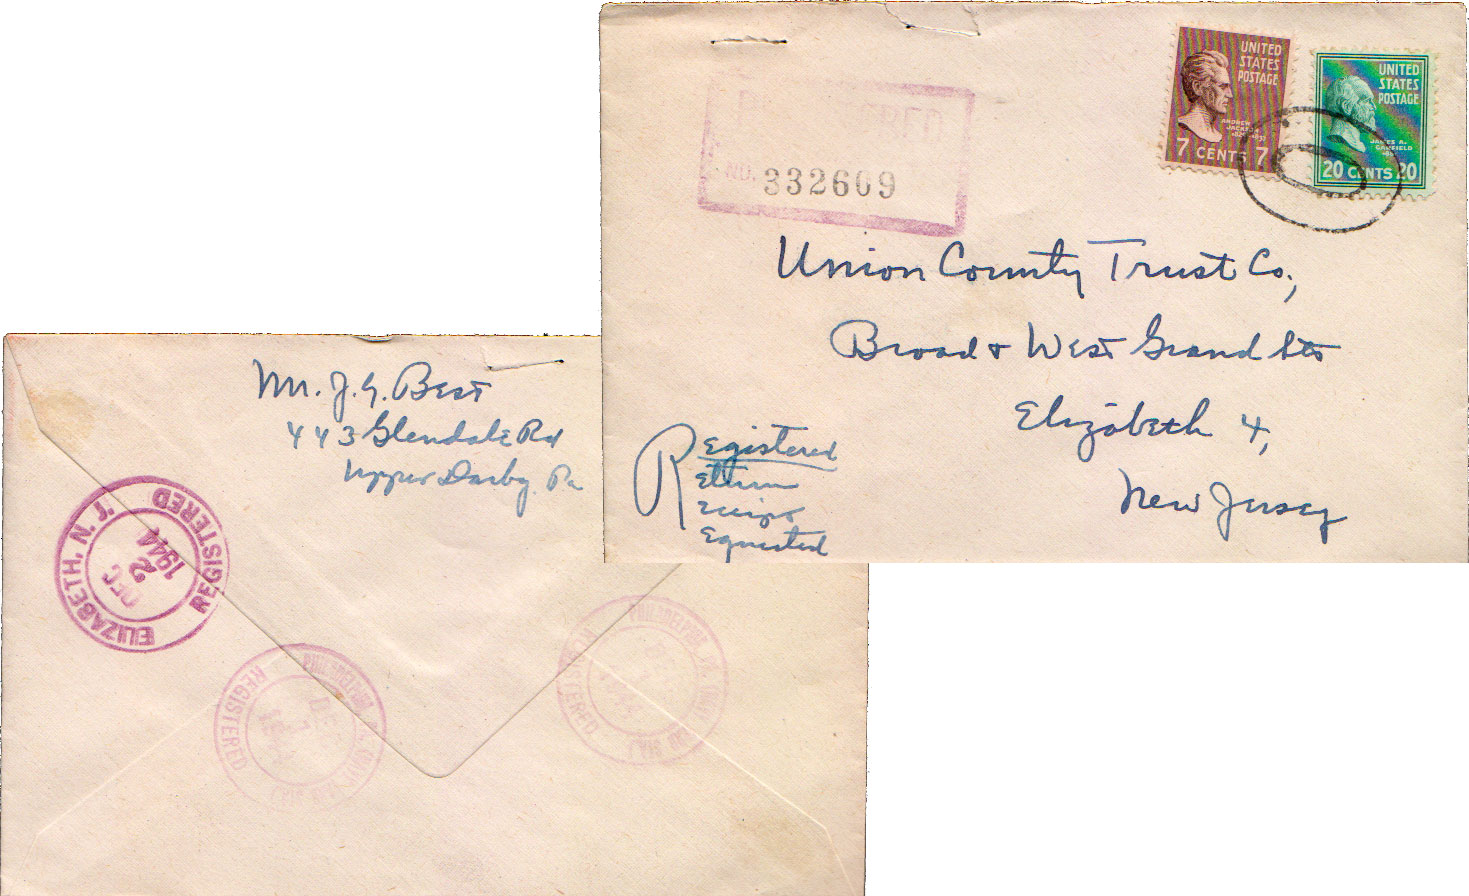 REGISTERED
NO. 332609
UNITED
STATES
POSTAGE
ANDREW
JACKSON
1829-1837
7 CENTS 7
UNITED
STATES
POSTAGE
JAMES A.
GARFIELD
1881
20 CENTS 20
Union County Trust Co.,
Broad & West Grand Sts
Elizabeth 4,
New Jersey
Registered
Return
Receipt
Requested
Mr. J. G. Best
443 Glendale Rd
Upper Darby, Pa
ELIZABETH, N. J.
REGISTERED
DEC
2
1944
PHILADELPHIA, PA.
REGISTERED
DEC
1
1944
PHILADELPHIA, PA.
REGISTERED
DEC
1
1944